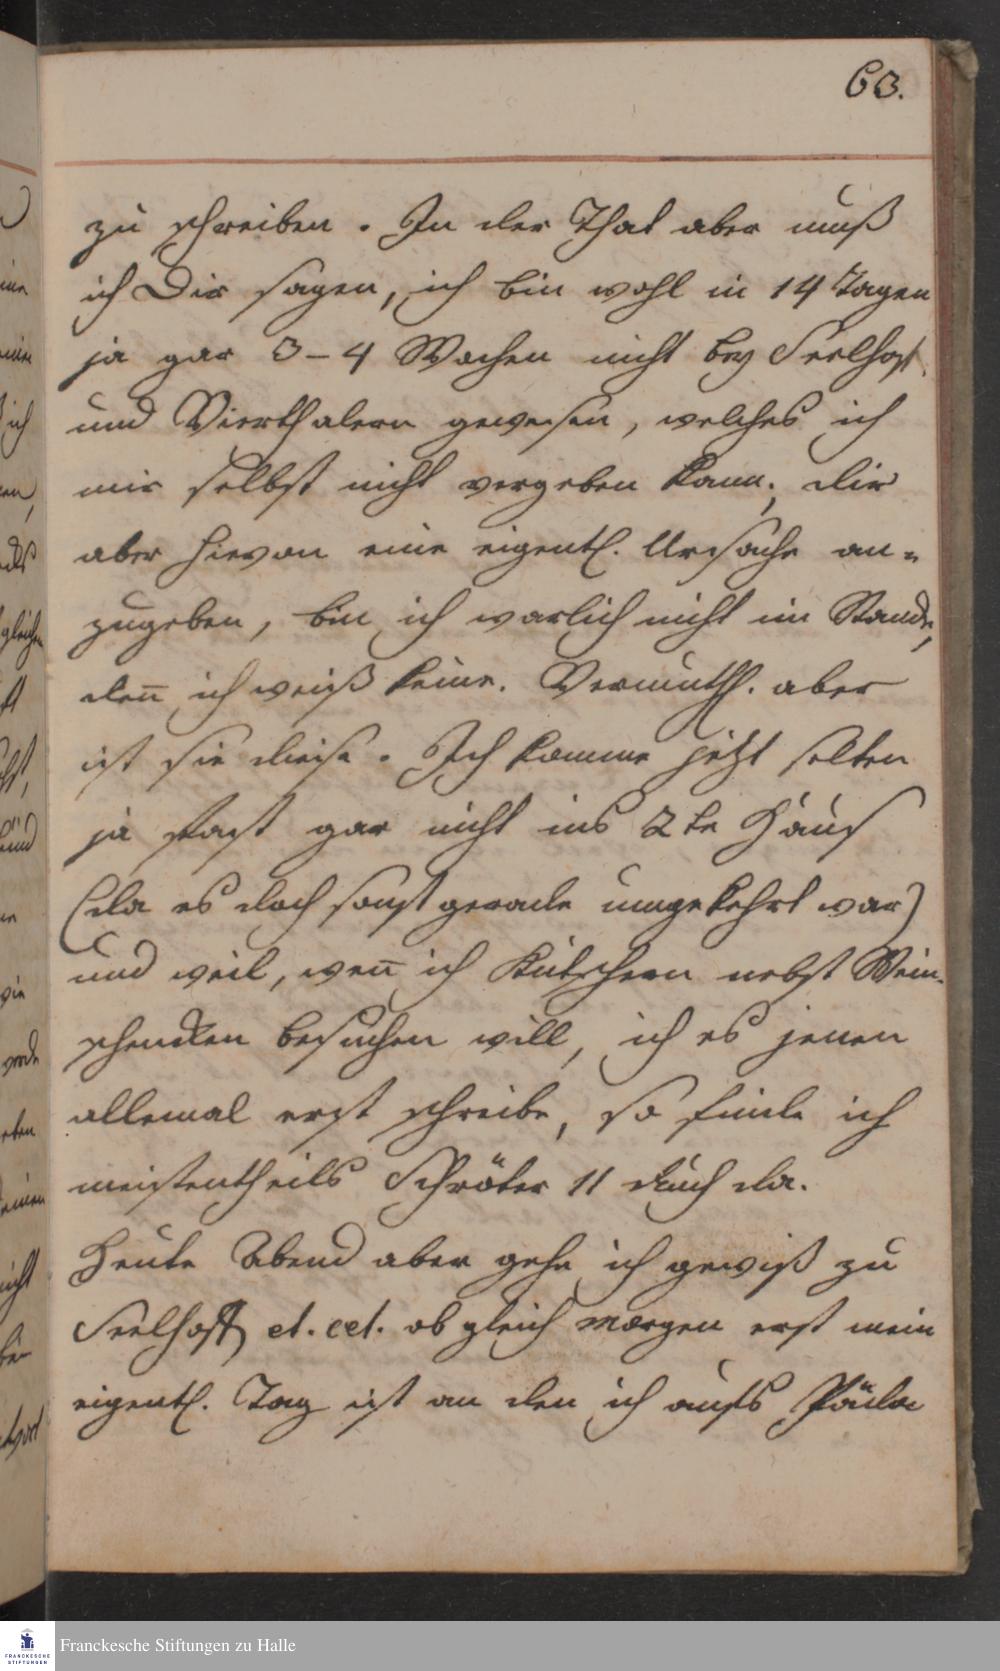 63.
zu schreiben. In der That aber muß
ich Dir sagen, ich bin wohl in 14 Tagen
ja gar 3-4 Wochen nicht bey Seelhoff
und Vierthalern gewesen, welches ich
mir selbst nicht vergeben kann; dir
aber hievon eine eigentl. Ursache an=
zugeben, bin ich warlich nicht im Stande,
den̅ ich weiß keine. Vermuthl. aber
ist sie diese. Ich komme jetzt selten
ja fast gar nicht ins 2te Haus
(da es doch sonst gerade umgekehrt war)
und weil, wen̅ ich Kutschern nebst Wein=
schencken besuchen will, ich es jenen
allemal erst schreibe, so finde ich
meistentheils Schröter 11 auch da.
Heute Abend aber gehe ich gewiß zu
Seelhoff et. cet. ob gleich morgen erst mein
eigentl. Tag ist an den ich aufs
Franckesche Stiftungen zu Halle
FRANCKESCHE
STIFTUNGEN